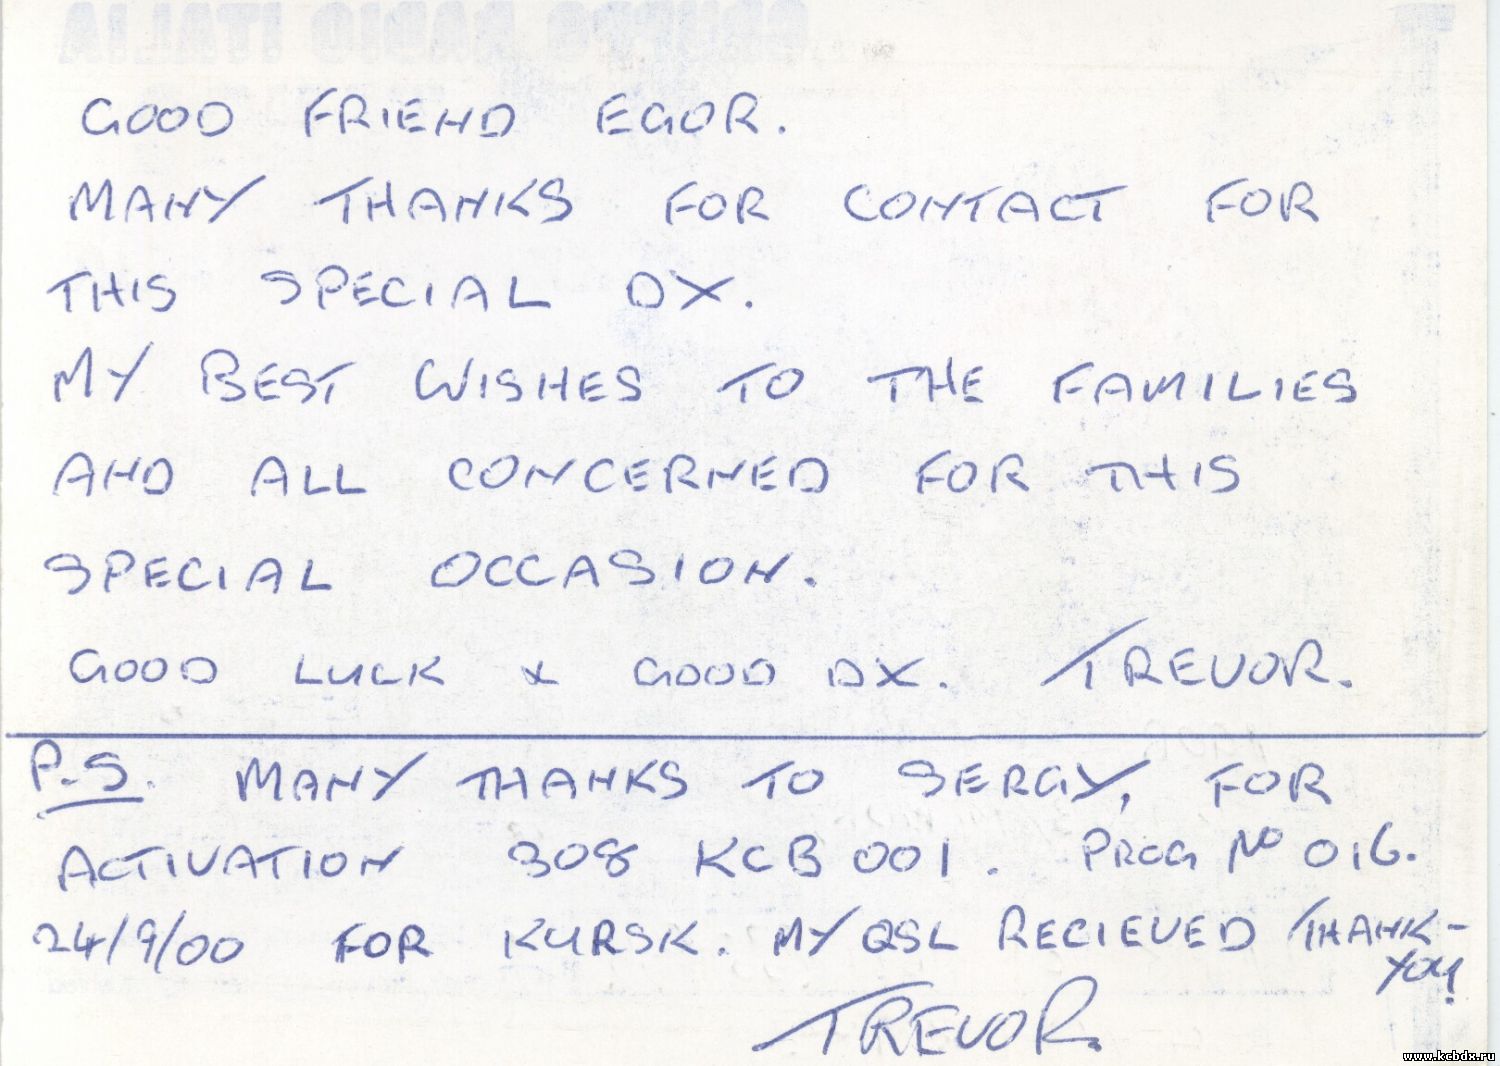 GRUPPO RADIO ITALIA
GOOD FRIEND EGOR.
MANY THANKS FOR CONTACT FOR
THIS SPECIAL DX.
MY BEST WISHES TO THE FAMILIES
AND ALL CONCERNED FOR THIS
SPECIAL OCCASION.
GOOD LUCK & GOOD DX. TREVOR.
P.S. MANY THANKS TO SERGY, FOR
ACTIVATION 308 KCB 001. PROG No 016.
24/9/00 FOR KURSK. MY QSL RECIEVED THANK-
YOU!
TREVOR.
www.kcbdx.ru